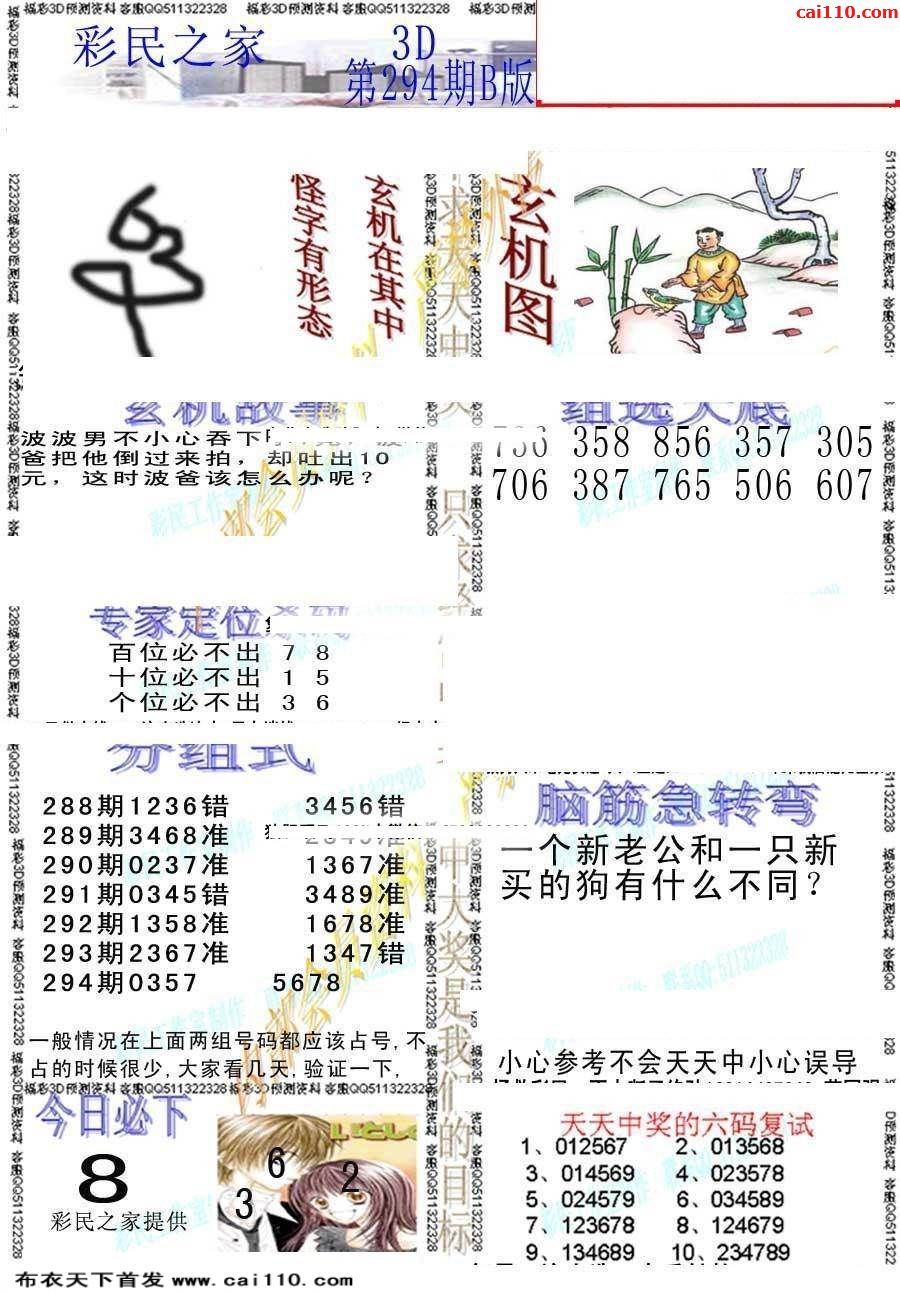 福彩3D预测资料 客服QQ511322328 福彩3D预测资料 客服QQ511322328 福彩3D预测
cai110.com
彩民之家
3D
第294期B版
怪字有形态
玄机在其中
玄机图
玄机故事
爸把他倒过来拍，却吐出10
元，这时波爸该怎么办呢？
组选大底
736 358 856 357 305
706 387 765 506 607
专家定位
百位必不出 7 8
十位必不出 1 5
个位必不出 3 6
分组式
288期1236错 3456错
289期3468准
290期0237准 1367准
291期0345错 3489准
292期1358准 1678准
293期2367准 1347错
294期0357 5678
一般情况在上面两组号码都应该占号,不
占的时候很少,大家看几天,验证一下,
福彩3D预测资料 客服QQ511322328 福彩3D预测资料 客服QQ511322328
脑筋急转弯
一个新老公和一只新
买的狗有什么不同？
小心参考不会天天中小心误导
中大奖是我们的目标
今日必下
8
彩民之家提供
3
6
2
天天中奖的六码复试
1、012567 2、013568
3、014569 4、023578
5、024579 6、034589
7、123678 8、124679
9、134689 10、234789
布衣天下首发 www.cai110.com